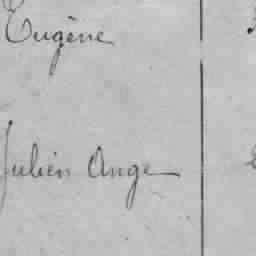 Eugène
Julien Ange